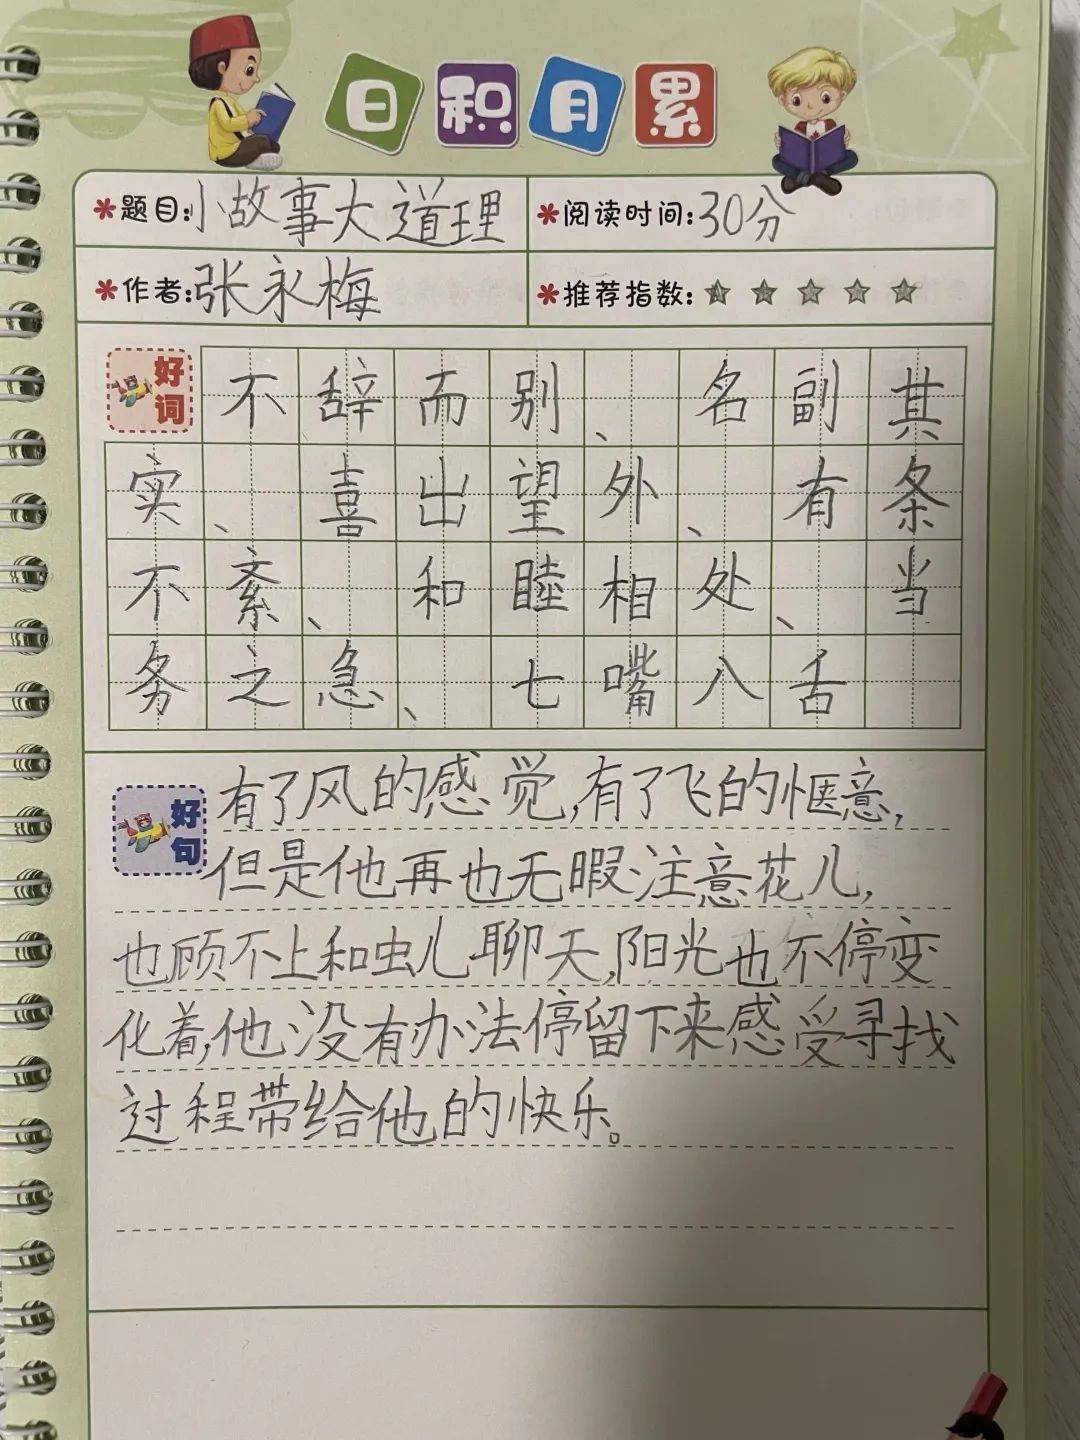 日积月累
题目:小故事大道理 阅读时间:30分
作者:张永梅 推荐指数:☆☆☆☆☆
好词 不辞而别、名副其
实、喜出望外、有条
不紊、和睦相处、当
务之急、七嘴八舌
好句 有了风的感觉,有了飞的惬意,
但是他再也无暇注意花儿,
也顾不上和虫儿聊天,阳光也不停变
化着,他没有办法停留下来感受寻找
过程带给他的快乐。